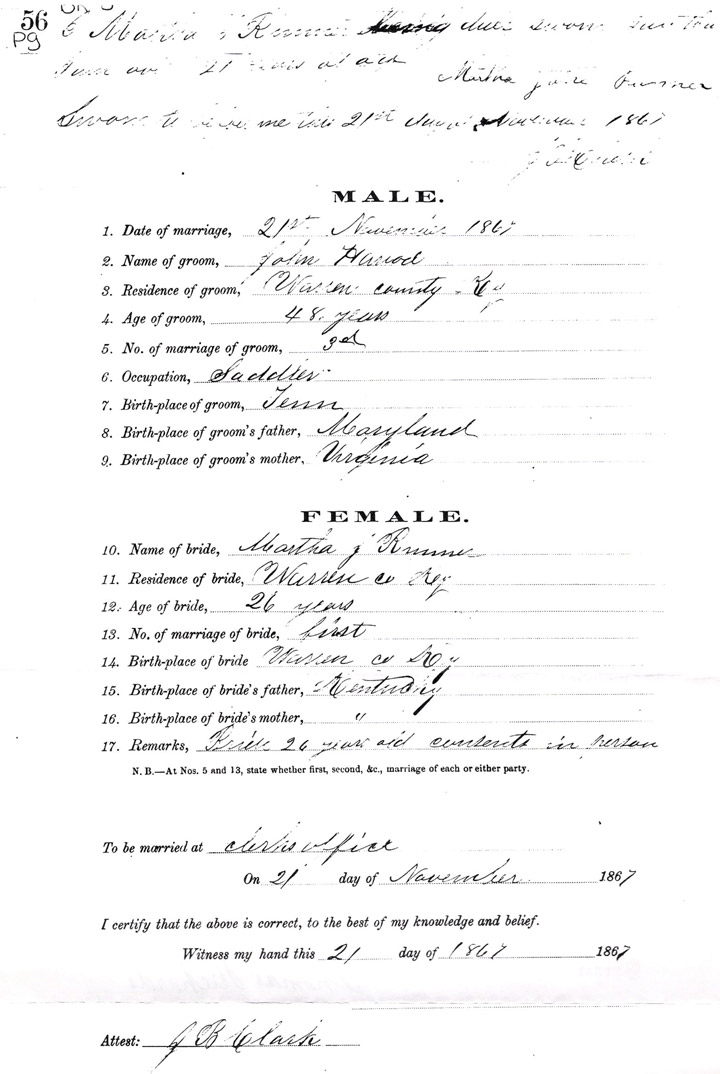 56
Pg
I Martha J Runner being duly sworn says that
I am over 21 years of age
Martha Jane Runner
Sworn to before me this 21st day of November 1867
MALE.
1. Date of marriage, 21st November 1867
2. Name of groom, John Harrod
3. Residence of groom, Warren county Ky
4. Age of groom, 48 years
5. No. of marriage of groom, 3rd
6. Occupation, Saddler
7. Birth-place of groom, Tenn
8. Birth-place of groom's father, Maryland
9. Birth-place of groom's mother, Virginia
FEMALE.
10. Name of bride, Martha J Runner
11. Residence of bride, Warren co Ky
12. Age of bride, 26 years
13. No. of marriage of bride, first
14. Birth-place of bride Warren co Ky
15. Birth-place of bride's father, Kentucky
16. Birth-place of bride's mother, "
17. Remarks, Bride 26 years old consents in person
N. B.—At Nos. 5 and 13, state whether first, second, &c., marriage of each or either party.
To be married at clerks office
On 21 day of November 1867
I certify that the above is correct, to the best of my knowledge and belief.
Witness my hand this 21 day of 1867 1867
Attest: J B Clark